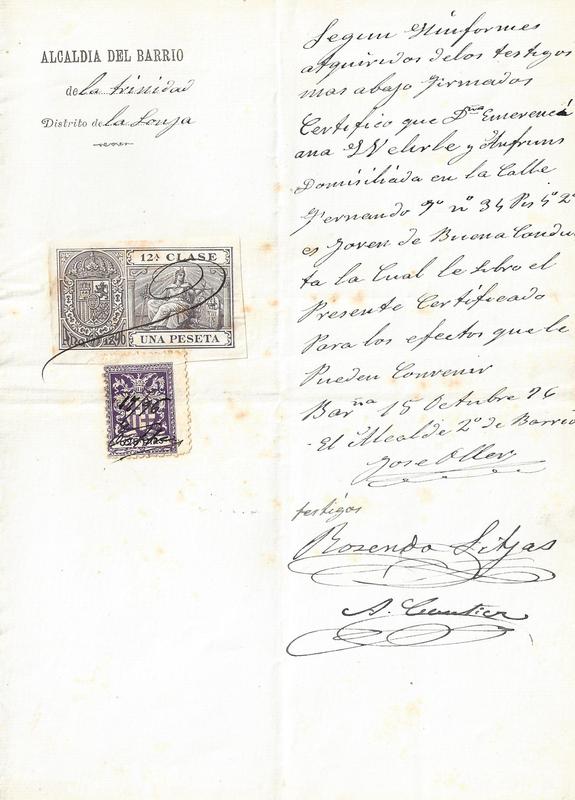 ALCALDIA DEL BARRIO
de la trinidad
Distrito de la Lonja
12ª CLASE
UNA PESETA
Segun Ynformes
adquiridos de los testigos
mas abajo firmados
Certifico que Dña Emerenci
ana Wehrle y
Domisiliada en la Calle
Fernando 7º nº 34 Pis 4º 2ª
es Joven de Buena Condu
ta la Cual le Libro el
Presente Certificado
Para los efectos que le
Pueden Convenir
Barna 15 Octubre 96
El Alcalde 2º de Barrio
Jose Oller
testigos
Rosendo Sitjas
A.